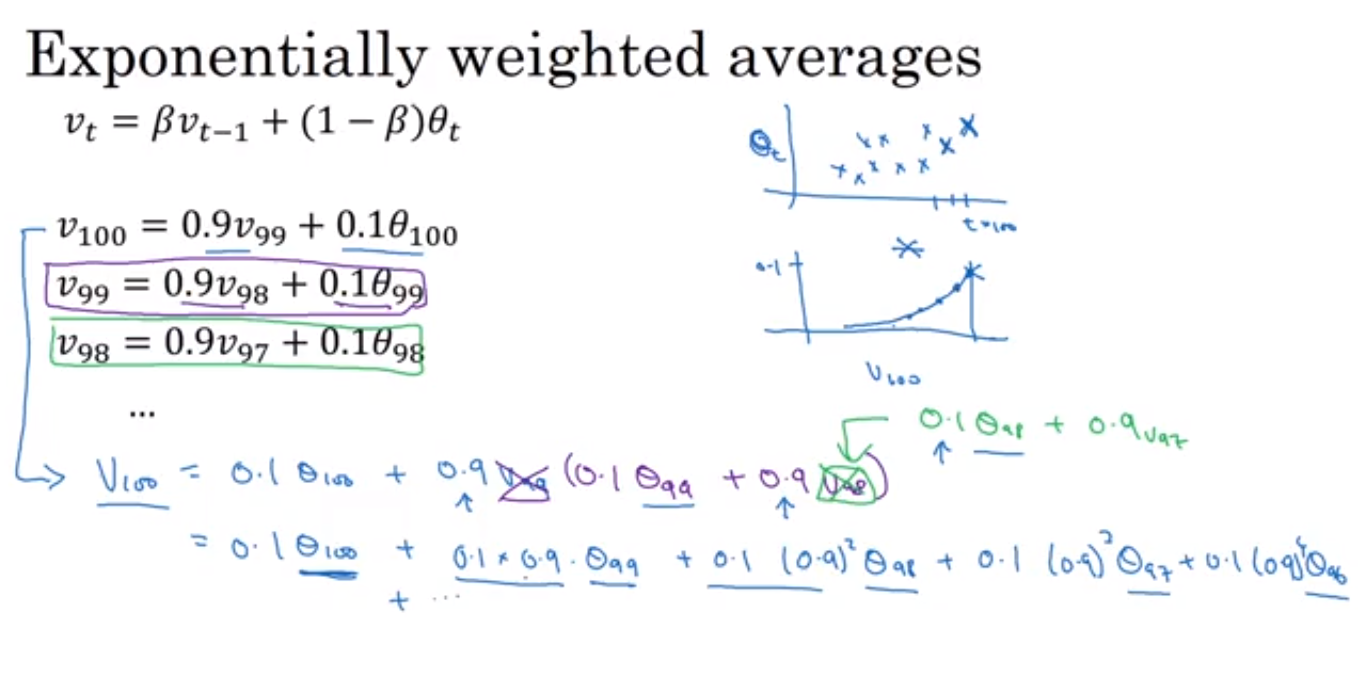 Exponentially weighted averages
vₜ = βvₜ₋₁ + (1 − β)θₜ
θₜ
t=100
v₁₀₀ = 0.9v₉₉ + 0.1θ₁₀₀
v₉₉ = 0.9v₉₈ + 0.1θ₉₉
v₉₈ = 0.9v₉₇ + 0.1θ₉₈
...
0.1
V₁₀₀
0.1 θ₉₈ + 0.9 v₉₇
V₁₀₀ = 0.1 θ₁₀₀ + 0.9 v₉₉ (0.1 θ₉₉ + 0.9 v₉₈)
= 0.1 θ₁₀₀ + 0.1 × 0.9 · θ₉₉ + 0.1 (0.9)² θ₉₈ + 0.1 (0.9)³ θ₉₇ + 0.1 (0.9)⁴ θ₉₆
+ ...